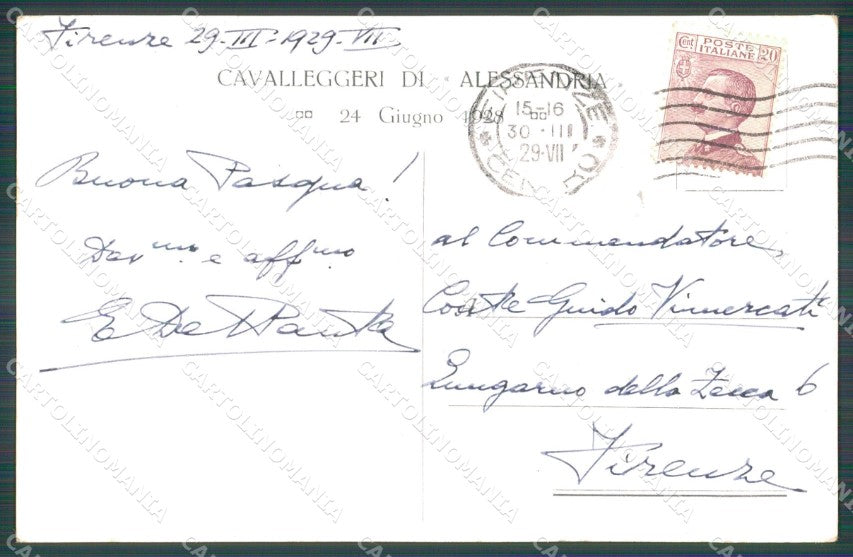 Firenze 29-III-1929-VII
CAVALLEGGERI DI ALESSANDRIA
24 Giugno 1928
POSTE
ITALIANE
Cent 20
FIRENZE
15-16
30 III
29-VII
Buona Pasqua!
Dev mo e affmo
al Commendatore
Guido Vimercati
Lungarno della Zecca 6
Firenze
CARTOLINOMANIA